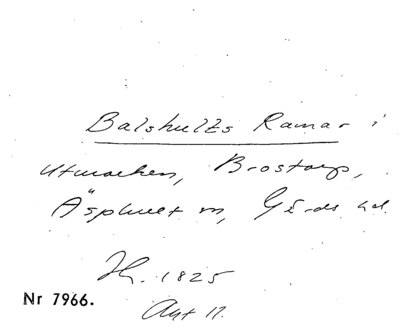 Balshults Ramar i
Utmarken, Brostorp,
Äsphult sn, Gärds hd.
H. 1825
Nr 7966.
Akt 17.